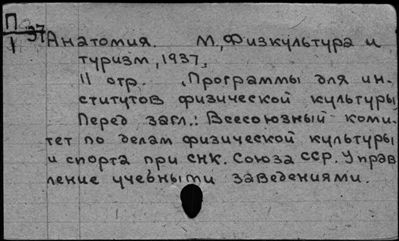 П
1 37
Анатомия. М., Физкультура и
туризм, 1937,
11 стр. . Программы для ин-
ститутов физической культуры
Перед загл.: Всесоюзный коми-
тет по делам физической культуры
и спорта при СНК. Союза ССР. Управ
ление учебными заведениями.